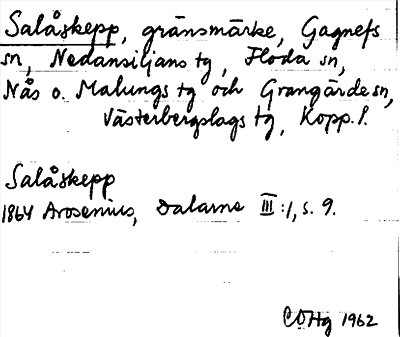 Salåskepp, gränsmärke, Gagnefs
sn, Nedansiljans tg, Floda sn,
Nås o. Malungs tg och Grangärde sn,
Västerbergslags tg, Kopp. l.
Salåskepp
1864 Arosenius, Dalarne III:1, s. 9.
COHg 1962